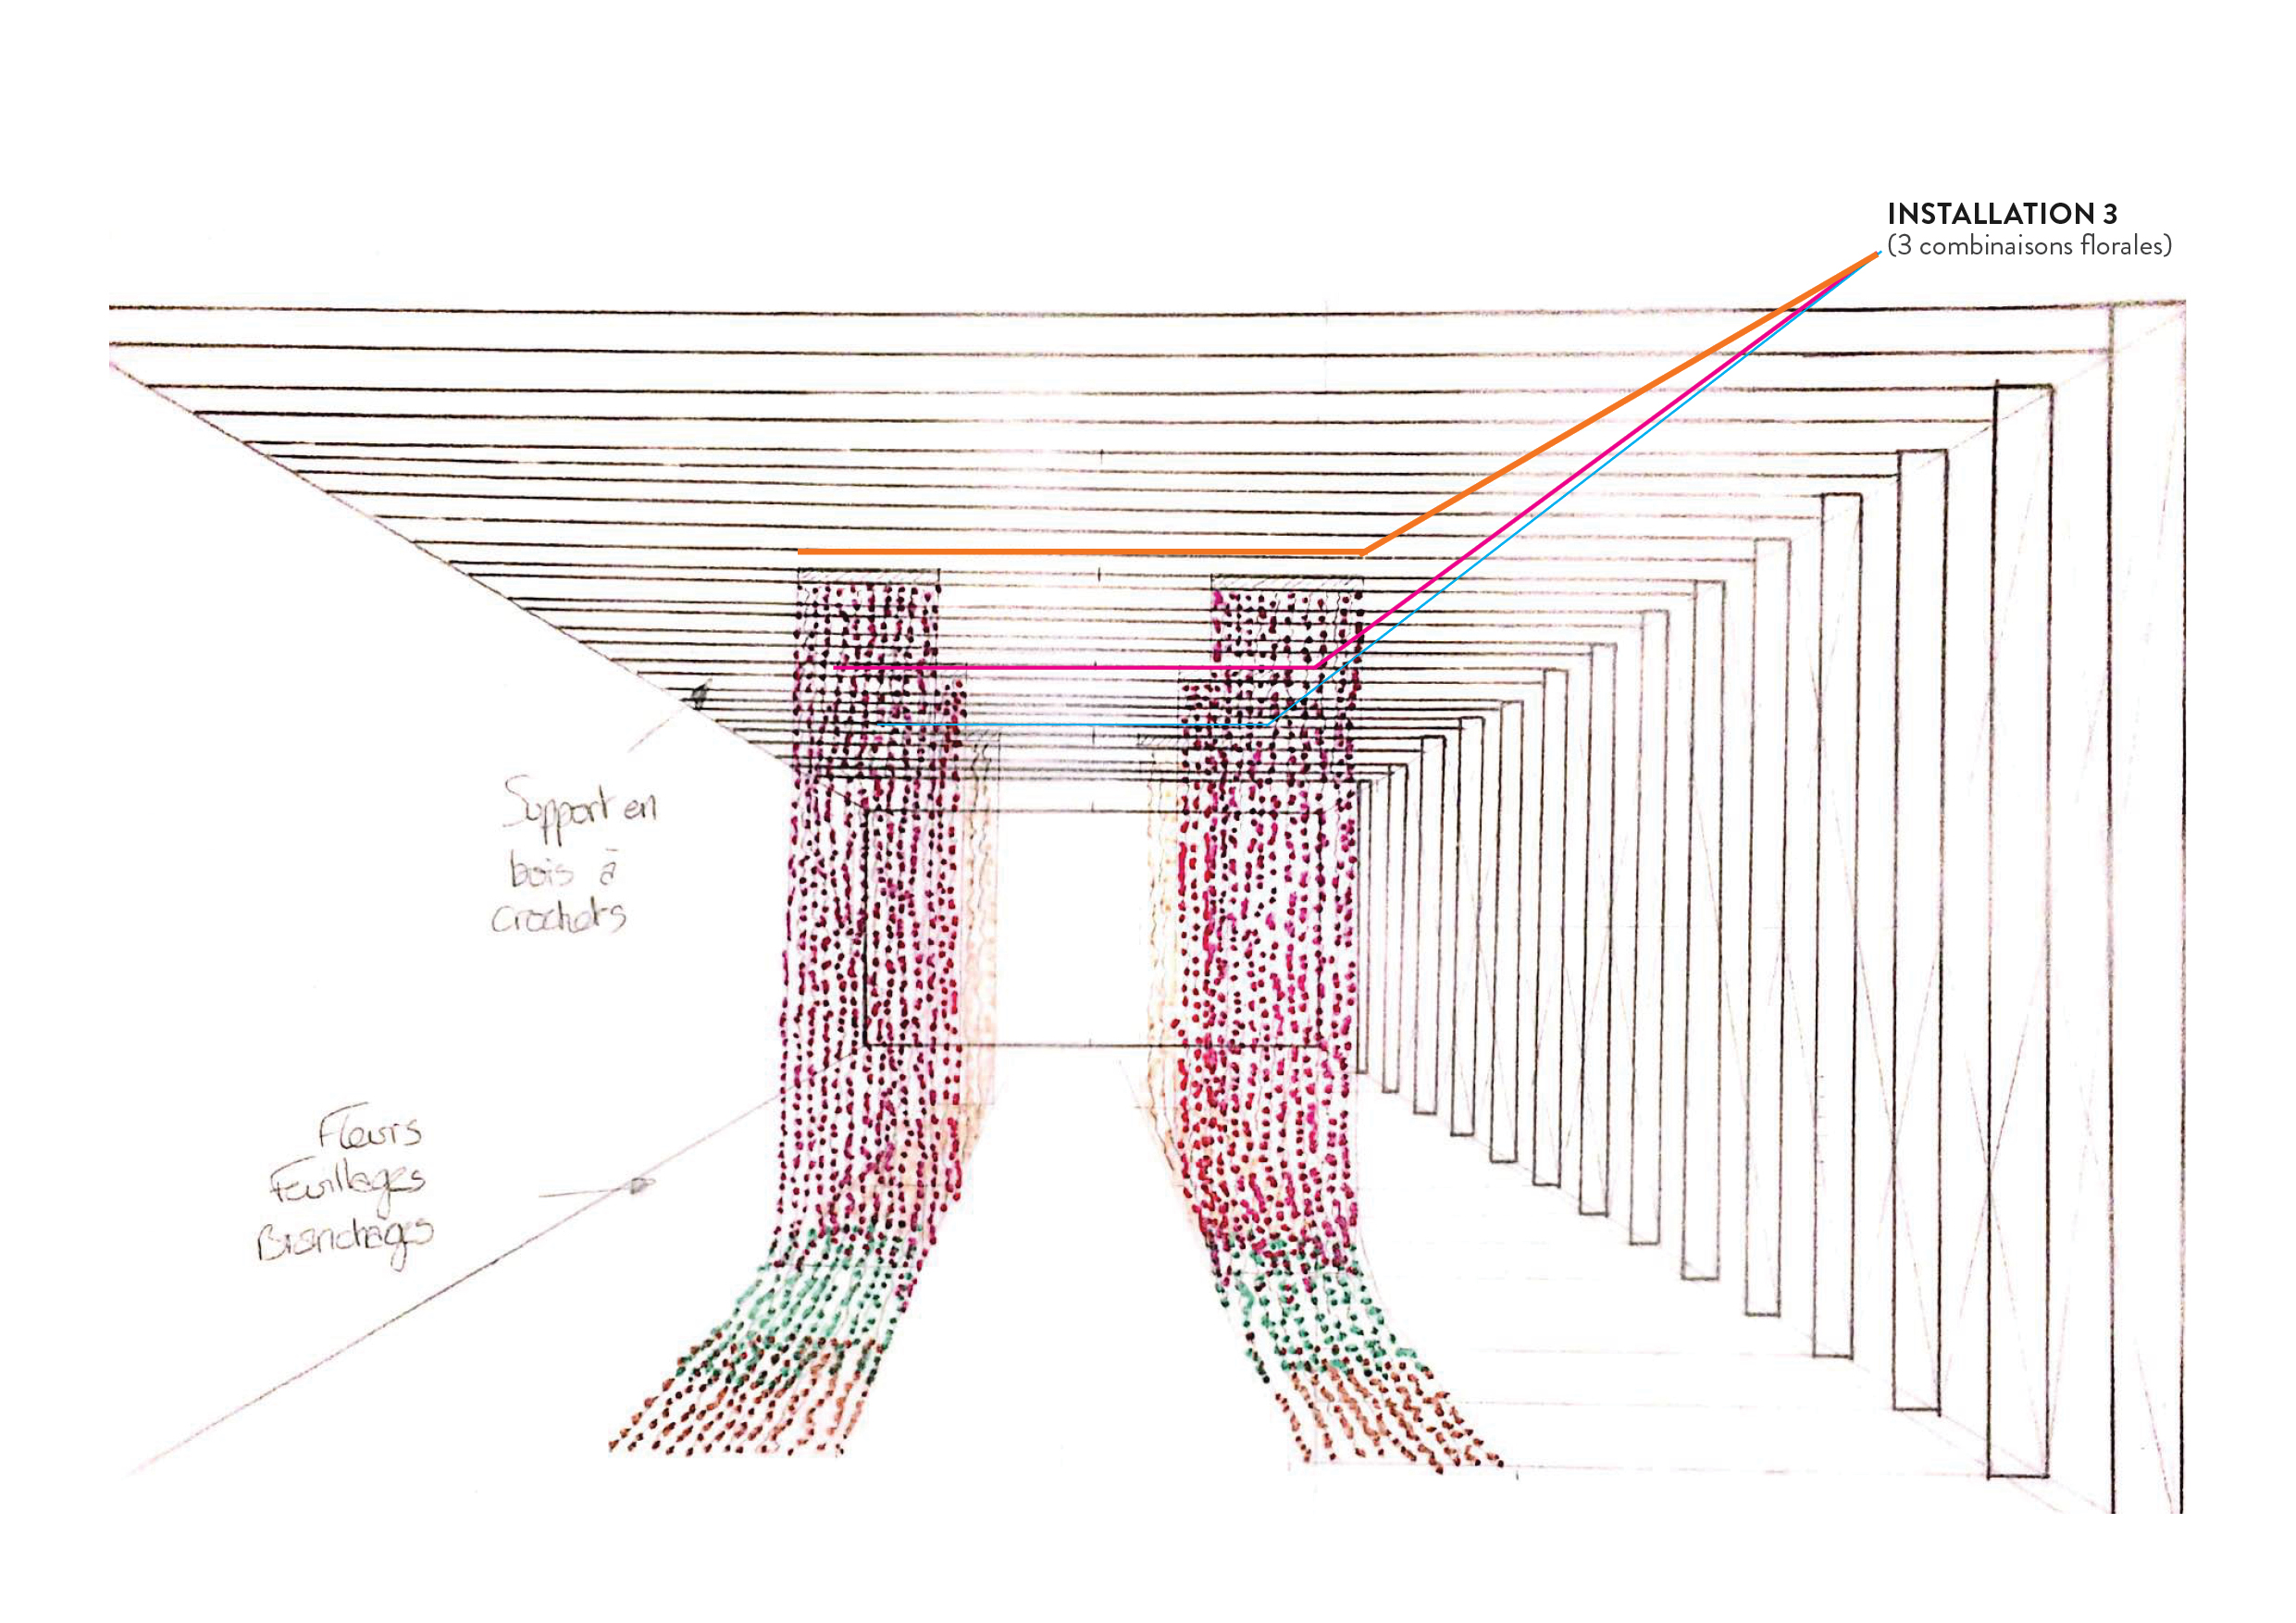 INSTALLATION 3
(3 combinaisons florales)
Support en
bois à
crochets
Fleurs
Feuillages
Branchages